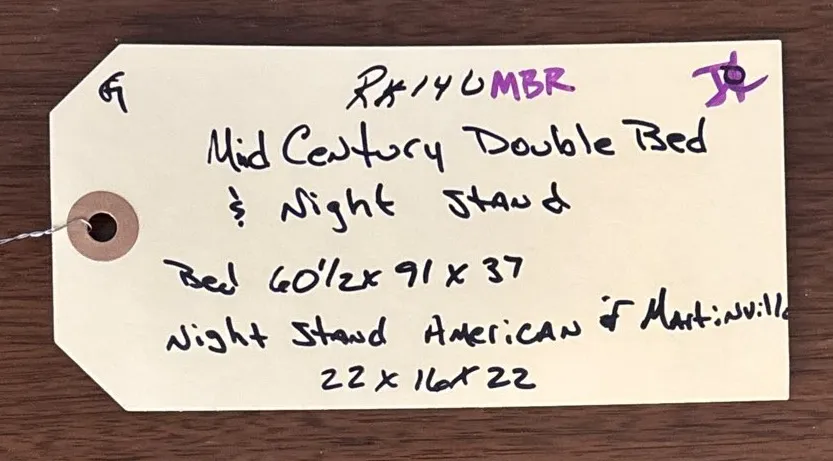 G RK140 MBR
Mid Century Double Bed
& Night Stand
Bed 60 1/2 x 91 x 37
Night Stand American of Martinville
22 x 16 x 22